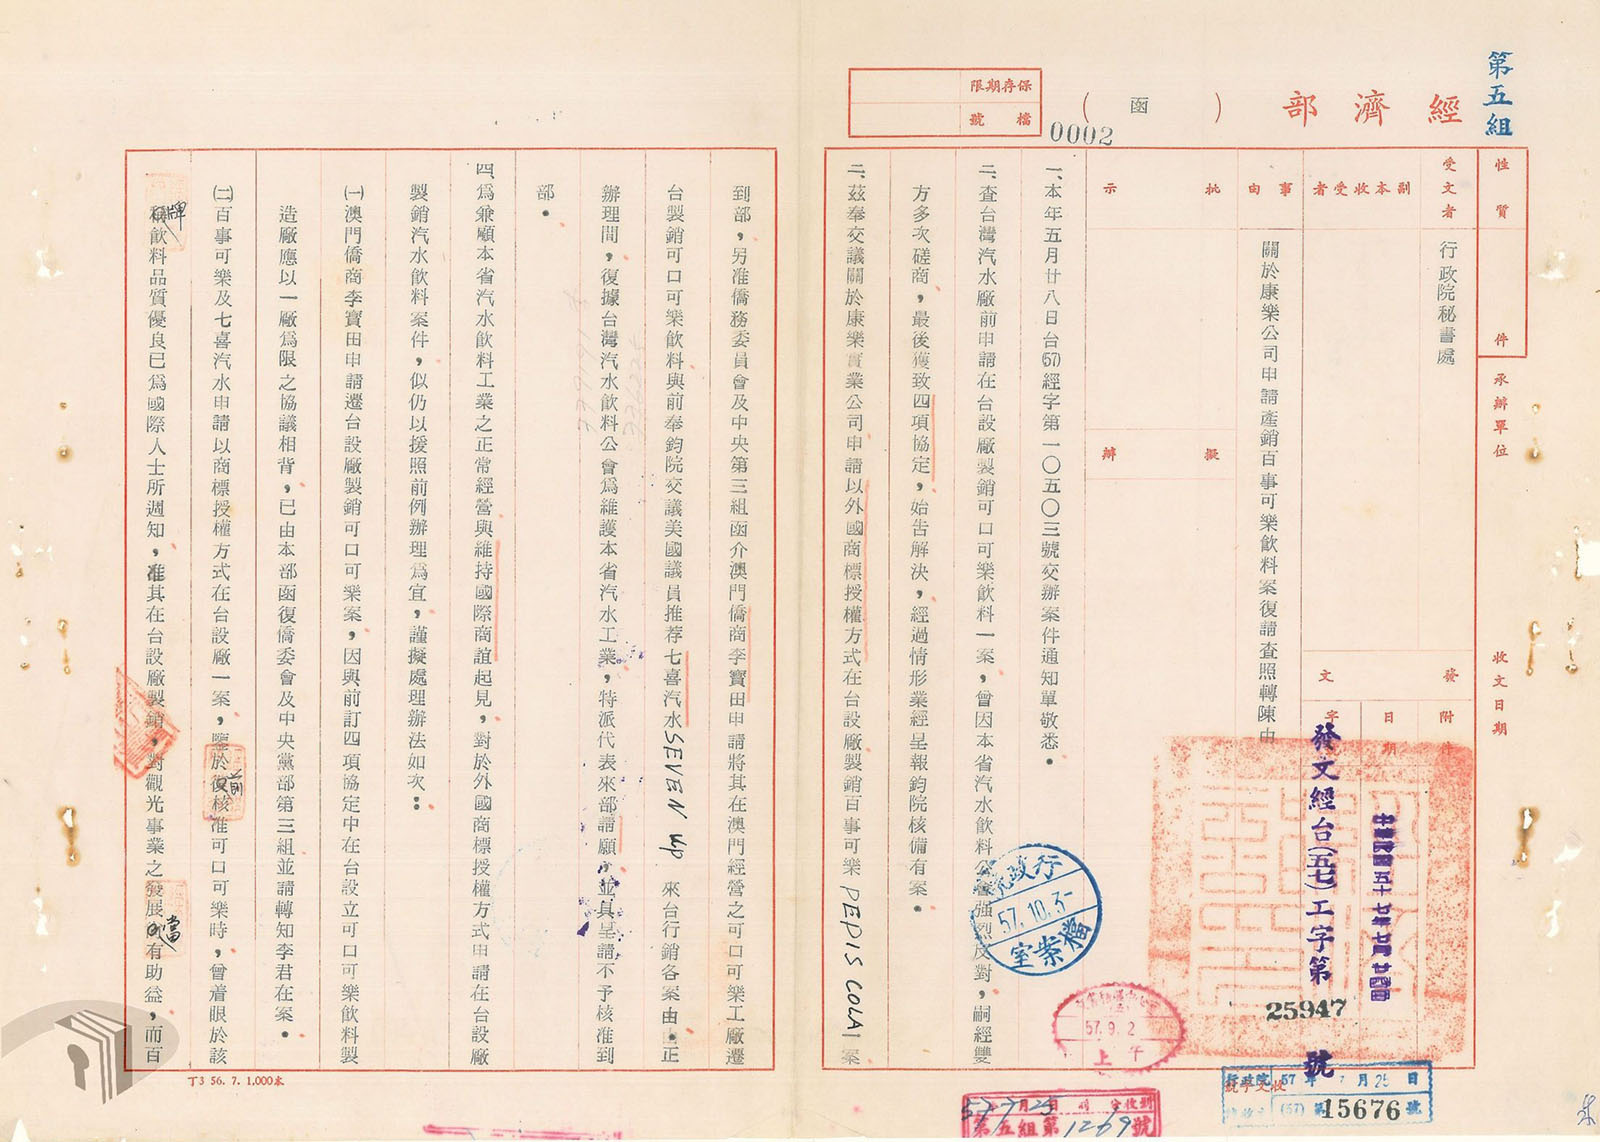 第五組
經濟部
(函)
保存期限
檔號
0002
性質
件
承辦單位
收文日期
受文者
行政院秘書處
副本收受者
事由
關於康樂公司申請產銷百事可樂飲料案復請查照轉陳由
批示
擬辦
發文
附件
日期
字
中華民國五十七年七月廿四日
發文經台(五七)工字第
25947
號
一、本年五月廿八日台(57)經字第一〇五〇三號交辦案件通知單敬悉。
二、查台灣汽水廠前申請在台設廠製銷可口可樂飲料一案,曾因本省汽水飲料公會强烈反對,嗣經雙
方多次磋商,最後獲致四項協定,始告解決,經過情形業經呈報鈞院核備有案。
三、茲奉交議關於康樂實業公司申請以外國商標授權方式在台設廠製銷百事可樂PEPIS COLAI案
到部,另准僑務委員會及中央第三組函介澳門僑商李寶田申請將其在澳門經營之可口可樂工廠遷
台製銷可口可樂飲料與前奉鈞院交議美國議員推荐七喜汽水SEVEN up 來台行銷各案由。正
辦理間,復據台灣汽水飲料公會爲維護本省汽水工業,特派代表來部請願,並具呈請不予核准到
部。
四、爲兼顧本省汽水飲料工業之正常經營與維持國際商誼起見,對於外國商標授權方式申請在台設廠
製銷汽水飲料案件,似仍以援照前例辦理爲宜,謹擬處理辦法如次:
㈠澳門僑商李寶田申請遷台設廠製銷可口可樂案,因與前訂四項協定中在台設立可口可樂飲料製
造廠應以一廠爲限之協議相背,已由本部函復僑委會及中央黨部第三組並請轉知李君在案。
㈡百事可樂及七喜汽水申請以商標授權方式在台設廠一案,鑒於前核准可口可樂時,曾着眼於該
牌飲料品質優良已爲國際人士所週知,准其在台設廠製銷,對觀光事業之發展當有助益,而百
行政院
57.10.3
檔案室
57.9.2
上午
行政院收文
57年7月25日
(57)第15676號
57 7月25日
第五組第1269號
丁3 56. 7. 1,000本